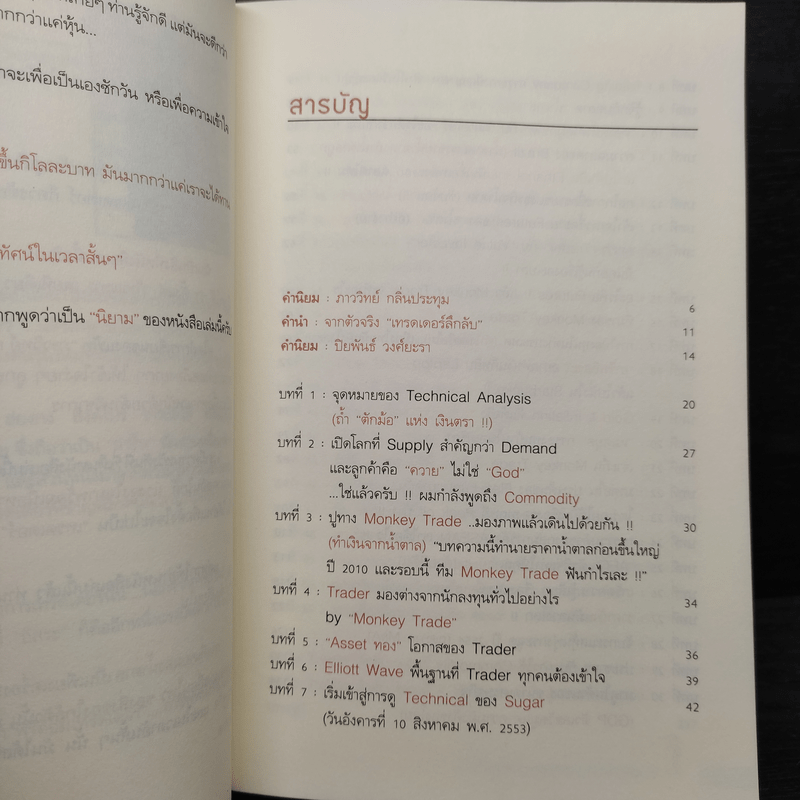 ท่านรู้จักดี แต่มันจะดีกว่า
ากกว่าแค่หุ้น...
าจะเพื่อเป็นเองซักวัน หรือเพื่อความเข้าใจ
ขึ้นกิโลละบาท มันมากกว่าแค่เราจะได้ทาน
ทัศน์ในเวลาสั้นๆ"
ากพูดว่าเป็น "นิยาม" ของหนังสือเล่มนี้ครับ
สารบัญ
คำนิยม : ภาววิทย์ กลิ่นประทุม 6
คำนำ : จากตัวจริง "เทรดเดอร์ลึกลับ" 11
คำนิยม : ปิยพันธ์ วงศ์ยะรา 14
บทที่ 1 : จุดหมายของ Technical Analysis 20
(ถ้ำ "ตักม้อ" แห่ง เงินตรา !!)
บทที่ 2 : เปิดโลกที่ Supply สำคัญกว่า Demand 27
และลูกค้าคือ "ควาย" ไม่ใช่ "God"
...ใช่แล้วครับ !! ผมกำลังพูดถึง Commodity
บทที่ 3 : ปูทาง Monkey Trade ..มองภาพแล้วเดินไปด้วยกัน !! 30
(ทำเงินจากน้ำตาล) "บทความนี้ทำนายราคาน้ำตาลก่อนขึ้นใหญ่
ปี 2010 และรอบนี้ ทีม Monkey Trade ฟันกำไรเละ !!"
บทที่ 4 : Trader มองต่างจากนักลงทุนทั่วไปอย่างไร 34
by "Monkey Trade"
บทที่ 5 : "Asset ทอง" โอกาสของ Trader 36
บทที่ 6 : Elliott Wave พื้นฐานที่ Trader ทุกคนต้องเข้าใจ 39
บทที่ 7 : เริ่มเข้าสู่การดู Technical ของ Sugar 42
(วันอังคารที่ 10 สิงหาคม พ.ศ. 2553)